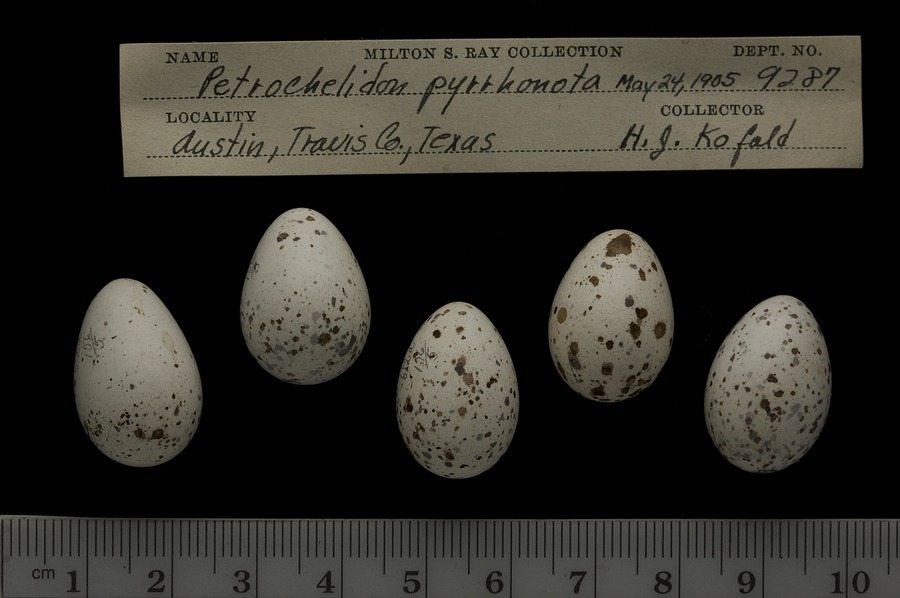 NAME MILTON S. RAY COLLECTION DEPT. NO.
Petrochelidon pyrrhonota May 24, 1905 9287
LOCALITY COLLECTOR
Austin, Travis Co., Texas H. J. Kofald
cm 1 2 3 4 5 6 7 8 9 10